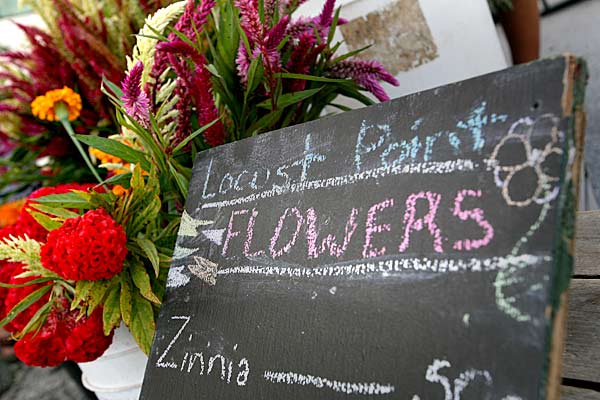 Locust Point
FLOWERS
Zinnia — .50